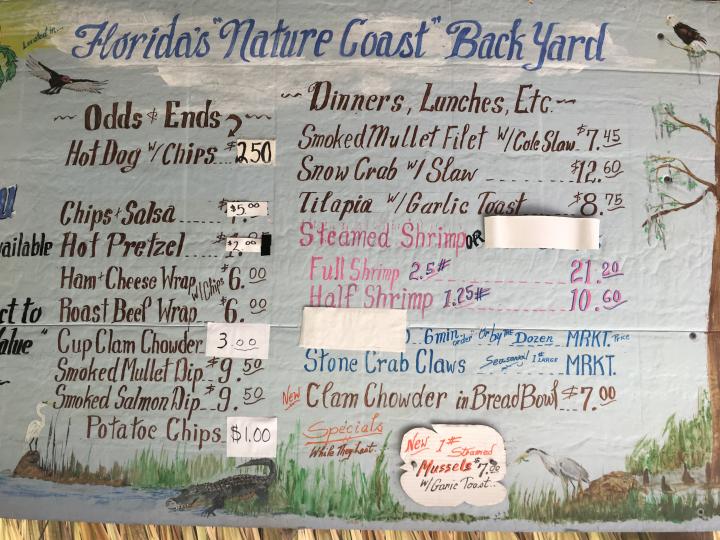 Located in...
Florida's "Nature Coast" Back Yard
Odds & Ends
Hot Dog w/ Chips $2.50
Chips & Salsa $5.00
Hot Pretzel $2.00
Ham & Cheese Wrap w/ Chips $6.00
Roast Beef Wrap $6.00
Cup Clam Chowder 3.00
Smoked Mullet Dip $9.50
Smoked Salmon Dip $9.50
Potatoe Chips $1.00
vailable
ct to
alue"
Dinners, Lunches, Etc.
Smoked Mullet Filet w/ Cole Slaw $7.45
Snow Crab w/ Slaw $12.60
Tilapia w/ Garlic Toast $8.75
Steamed Shrimp
Full Shrimp 2.5# 21.20
Half Shrimp 1.25# 10.60
6 min. order Or by the Dozen MRKT. Price
Stone Crab Claws Seasonal 1# LARGE MRKT.
New Clam Chowder in Bread Bowl $7.00
Specials
While They Last.
New 1# Steamed
Mussels $7.00
W/ Garlic Toast..